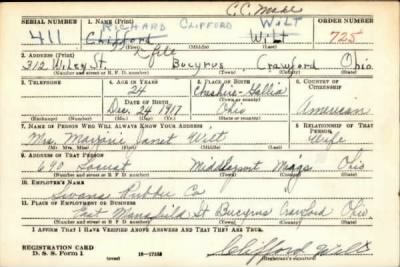 C.C. Male
SERIAL NUMBER 1. NAME (Print) ORDER NUMBER
RICHARD CLIFFORD WILT
411 Clifford Wilt 725
(First) (Middle) (Last)
2. ADDRESS (Print)
312 Wiley St. Bucyrus Crawford Ohio
(Number and street or R. F. D. number) (Town) (County) (State)
3. TELEPHONE 4. AGE IN YEARS 5. PLACE OF BIRTH 6. COUNTRY OF CITIZENSHIP
24 Cheshire-Gallia
DATE OF BIRTH (Town or county)
Dec. 24 1917 Ohio American
(Exchange) (Number) (Mo.) (Day) (Yr.) (State or country)
7. NAME OF PERSON WHO WILL ALWAYS KNOW YOUR ADDRESS 8. RELATIONSHIP OF THAT PERSON
Mrs. Janet Wilt Wife
(Mr., Mrs., Miss) (First) (Middle) (Last)
9. ADDRESS OF THAT PERSON
690 Locust Middleport Meigs Ohio
(Number and street or R. F. D. number) (Town) (County) (State)
10. EMPLOYER'S NAME
Swans Rubber Co
11. PLACE OF EMPLOYMENT OR BUSINESS
East Mansfield St Bucyrus Crawford Ohio
(Number and street or R. F. D. number) (Town) (County) (State)
I AFFIRM THAT I HAVE VERIFIED ABOVE ANSWERS AND THAT THEY ARE TRUE.
REGISTRATION CARD
D. S. S. Form 1 16—17105
(over) Clifford Wilt
(Registrant's signature)